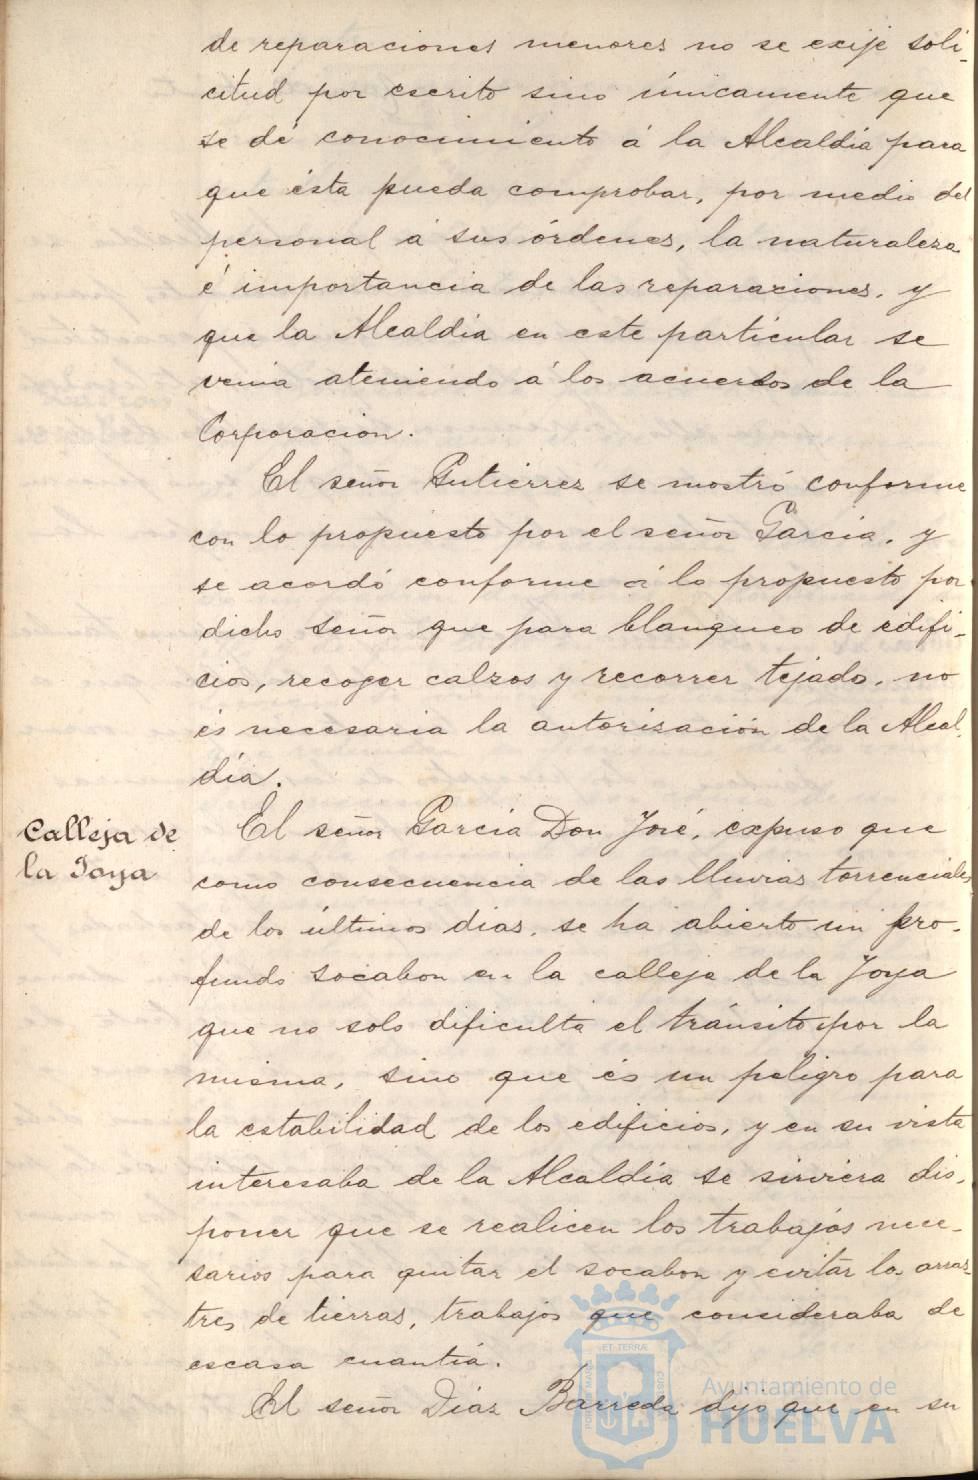 de reparaciones menores no se exije soli-
citud por escrito sino únicamente que
se dé conocimiento á la Alcaldía para
que ésta pueda comprobar, por medio del
personal á sus órdenes, la naturaleza
é importancia de las reparaciones, y
que la Alcaldía en este particular se
venia ateniendo á los acuerdos de la
Corporación.
El señor Gutiérrez se mostró conforme
con lo propuesto por el señor García, y
se acordó conforme á lo propuesto por
dicho señor que para blanqueo de edifi-
cios, recoger calzos y recorrer tejado, no
és necesaria la autorización de la Alcal-
día.
Calleja de
la Joya
El señor García Don José, expuso que
como consecuencia de las lluvias torrenciales
de los últimos dias, se ha abierto un pro-
fundo socabon en la calleja de la Joya
que no solo dificulta el tránsito por la
misma, sino que és un peligro para
la estabilidad de los edificios, y en su vista
interesaba de la Alcaldía se sirviera dis-
poner que se realicen los trabajos nece-
sarios para quitar el socabon y evitar los arras-
tres de tierras, trabajos que consideraba de
escasa cuantía.
El señor Díaz Barreda dijo que en su
ET TERRÆ
Ayuntamiento de
HUELVA